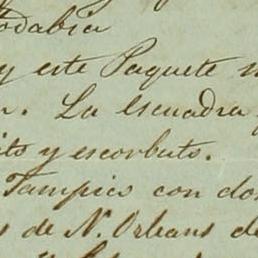 odabia
y este Paquete
. La Escuadra
ito y escorbuto.
Tampico con do
s de N. Orleans de